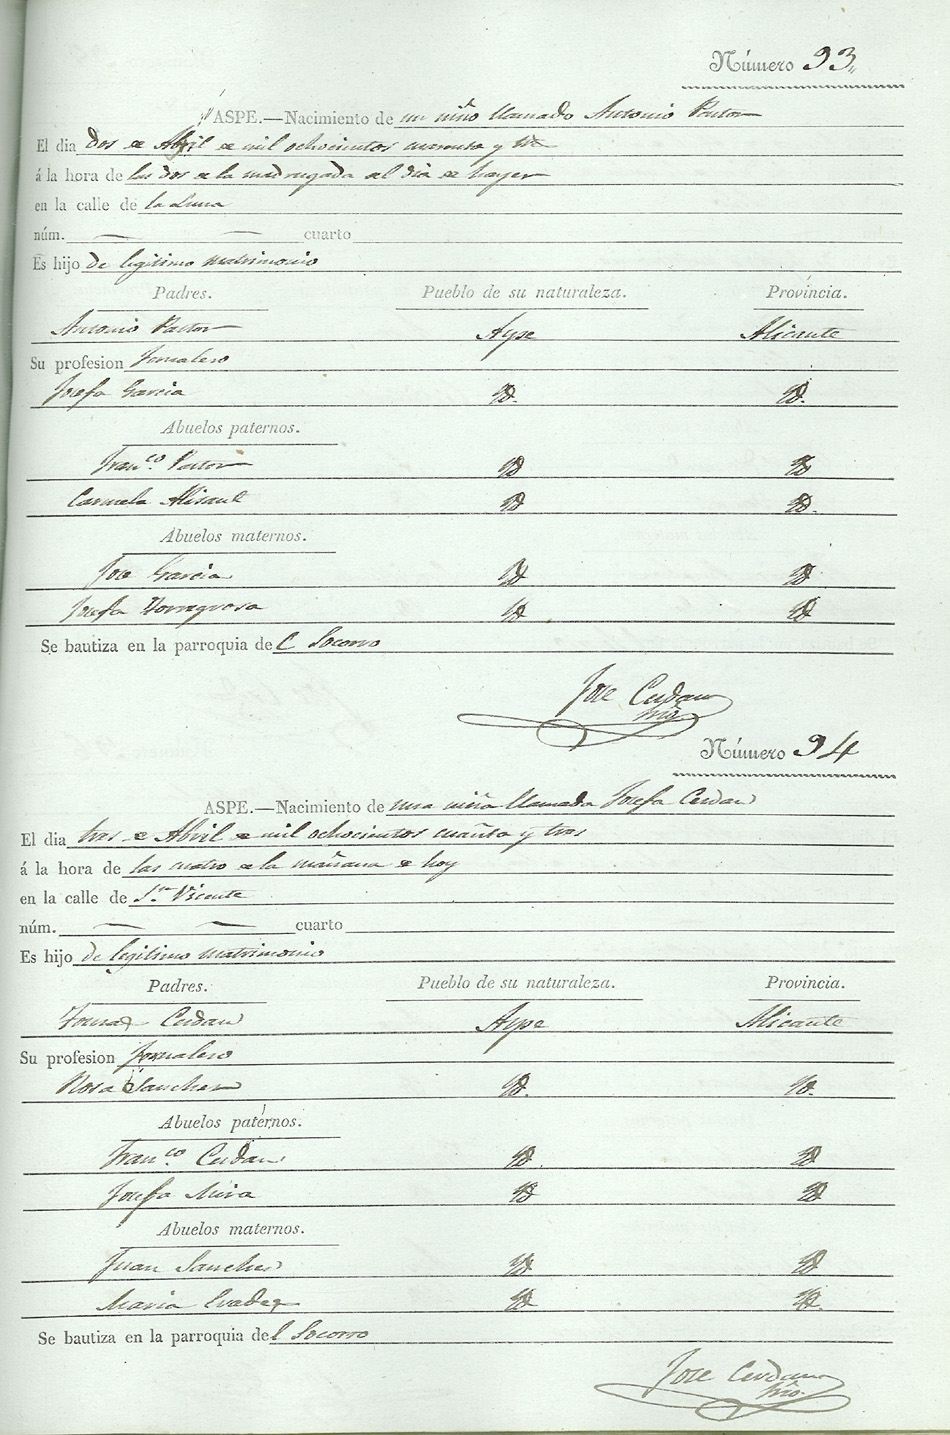 Número 93
ASPE.—Nacimiento de un niño llamado Antonio Pastor
El dia dos de Abril de mil ochocientos cuarenta y tres
á la hora de las dos de la madrugada del dia de hayer
en la calle de la Luna
núm. — — cuarto
Es hijo de legitimo matrimonio
Padres. Pueblo de su naturaleza. Provincia.
Antonio Pastor Aspe Alicante
Su profesion Jornalero
Josefa Garcia Yd. Yd.
Abuelos paternos.
Fran.co Pastor Yd Yd
Carmela Yd Yd.
Abuelos maternos.
Jose Garcia Yd Yd
Josefa Torregrosa Yd Yd
Se bautiza en la parroquia del Socorro
Jose Cerdan
Número 94
ASPE.—Nacimiento de una niña llamada Josefa Cerdan
El dia tres de Abril de mil ochocientos cuarenta y tres
á la hora de las cuatro de la mañana de hoy
en la calle de Sn. Vicente
núm. — — cuarto
Es hijo de legitimo matrimonio
Padres. Pueblo de su naturaleza. Provincia.
Cerdan Aspe Alicante
Su profesion Jornalero
Rosa Sanchez Yd. Yd.
Abuelos paternos.
Fran.co Cerdan Yd. Yd
Josefa Mira Yd Yd
Abuelos maternos.
Juan Sanchez Yd Yd
Maria Yd Yd.
Se bautiza en la parroquia del Socorro
Jose Cerdan